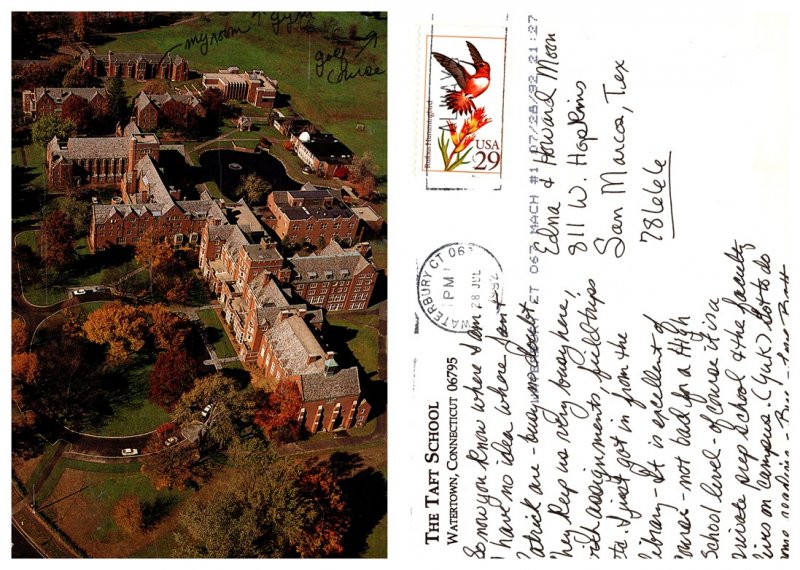 my room ↑ gym
golf
course
Rufous Hummingbird
USA
29
WATERBURY CT 06
PM
28 JUL
1992
WATERBURY CT 067 MACH #1 07/28/92 21:27
Edna & Howard Moon
811 W. Hopkins
San Marcos, Tex
78666
THE TAFT SCHOOL
WATERTOWN, CONNECTICUT 06795
So now you know where I am
I have no idea where Jan &
Patrick are - busy no doubt
They keep us very busy here,
with assignments, field trips
etc. I just got in from the
library - It is excellent of
course - not bad for a High
School level - of course it is a
private prep school & the faculty
lives on campus. (Yuk) Lot to do
some reading -